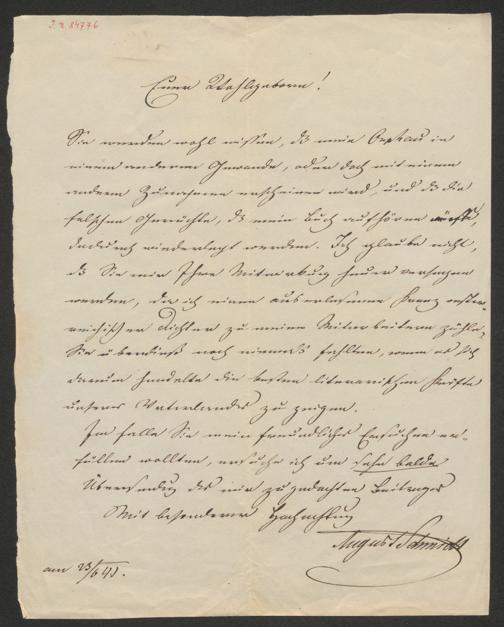 I. N. 84776
Euer Wohlgeboren!
Sie werden wohl wissen, daß mein Orpheus in
einem anderen Gewande, oder doch mit einem
andern Zunamen erscheinen wird, und daß die
falschen Gerüchte, daß mein Buch aufhören müßte,
dadurch wiederlegt werden. Ich glaube nicht,
daß Sie mir Ihre Mitwirkung heuer versagen
werden, da ich einen auserlesenen Kranz oester-
reichischer Dichter zu meinen Mitarbeitern zähle,
Sie überdieß noch niemals fehlten, wenn es sich
darum handelte die besten literarischen Kräfte
unseres Vaterlandes zu zeigen.
Im Falle Sie mein freundliches Ersuchen er-
füllen wollten, ersuche ich um sehr balde
Übersendung des mir zugedachten Beitrages
Mit besonderer Hochachtung
August Schmidt
am 23/6 41.